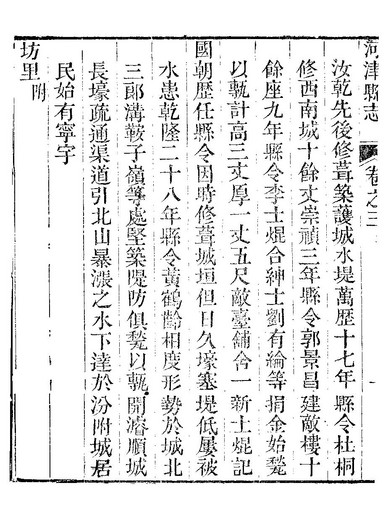 河津縣志　卷之三
汝乾先後修葺築護城水堤萬歷十七年縣令杜桐
修西南城十餘丈崇禎三年縣令郭景昌建敵樓十
餘座九年縣令李士焜合紳士劉有綸等捐金始甃
以甎計高三丈厚一丈五尺敵臺舖舍一新士焜記
國朝歷任縣令因時修葺城垣但日久壕塞堤低屢被
水患乾隆二十八年縣令黃鶴齡相度形勢於城北
三郎溝鞍子嶺等處堅築隄防俱甃以甎開濬順城
長壕疏通渠道引北山暴漲之水下達於汾附城居
民始有寧宇
坊里附